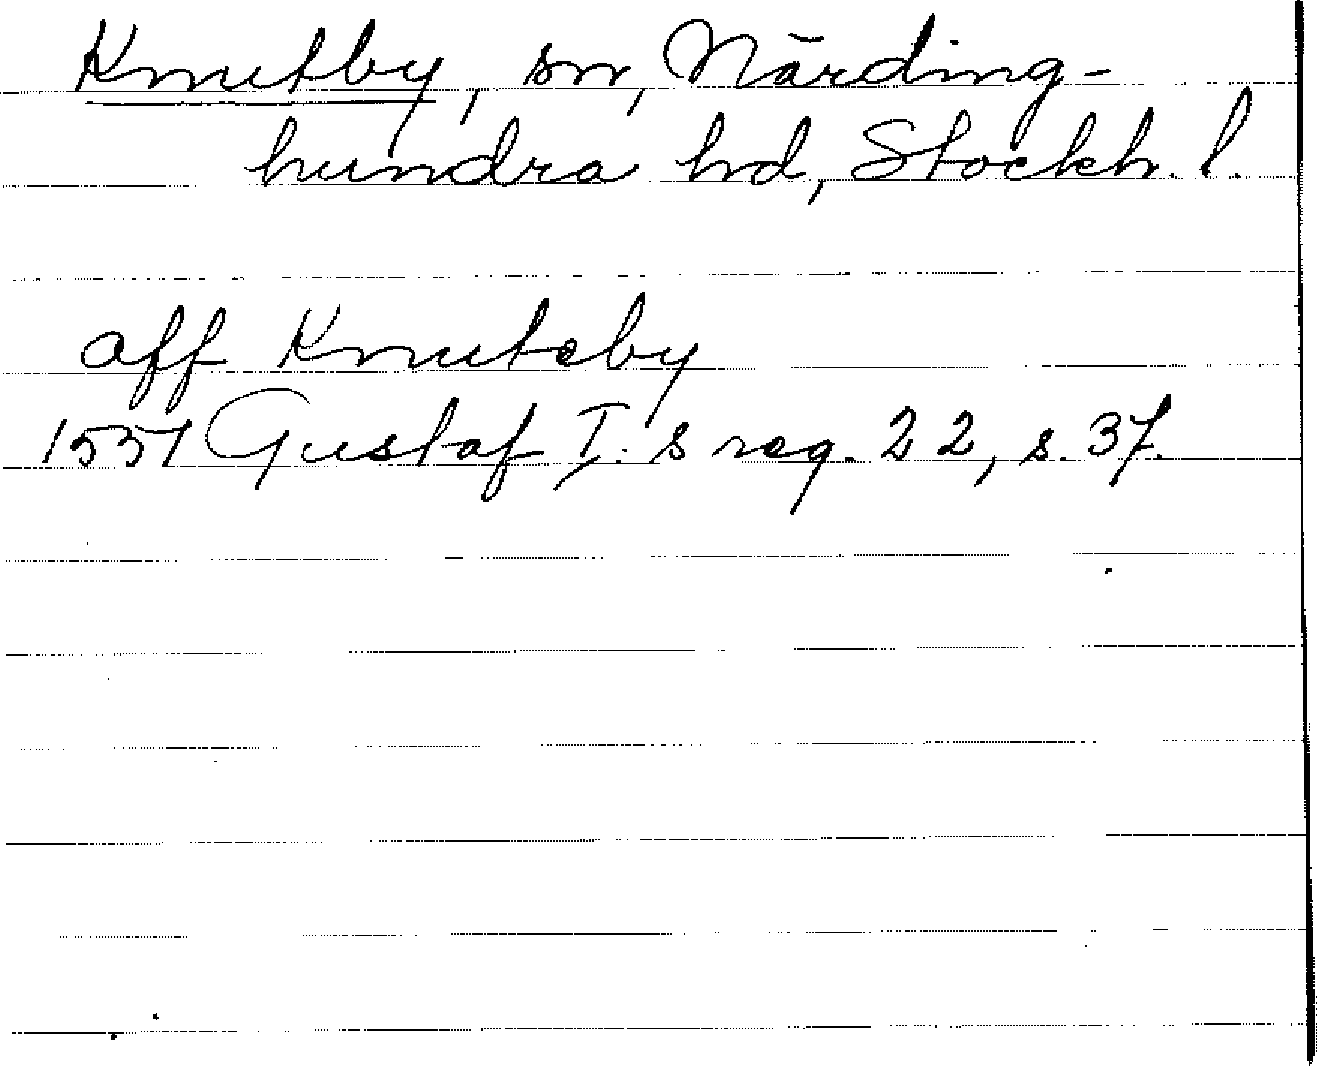 Knutby, sn, Närding-
hundra hd, Stockh. l.
aff Knuteby
1551 Gustaf I:s reg. 22, s. 37.